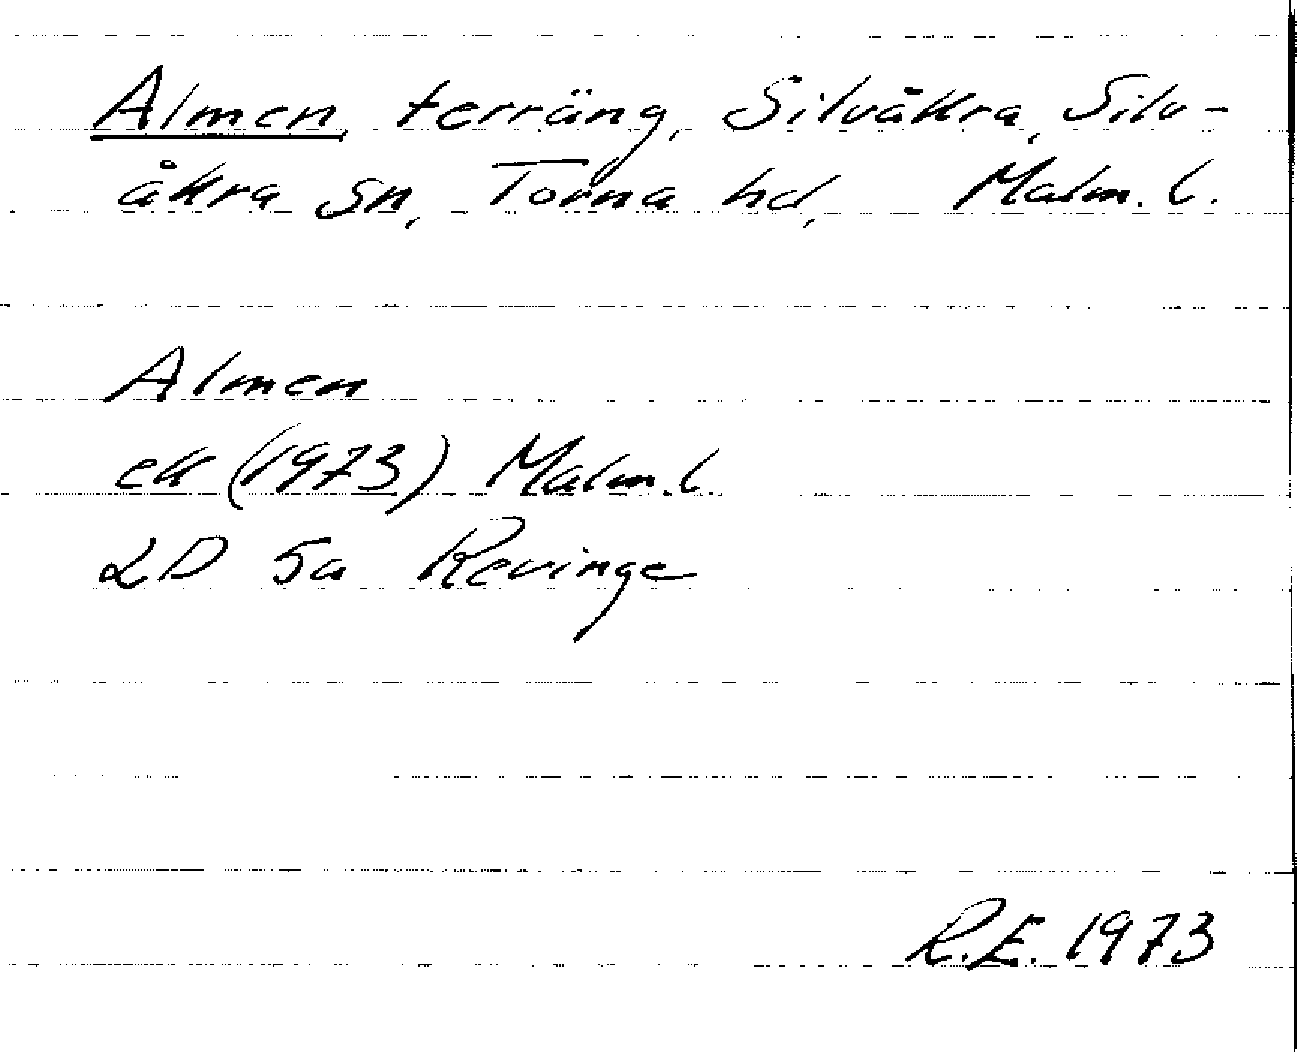 Almen, terräng, Silvåkra, Silv-
åkra sn, Torna hd, Malm. l.
Almen
ek (1973) Malm. l.
2D 5a Revinge
R.E. 1973